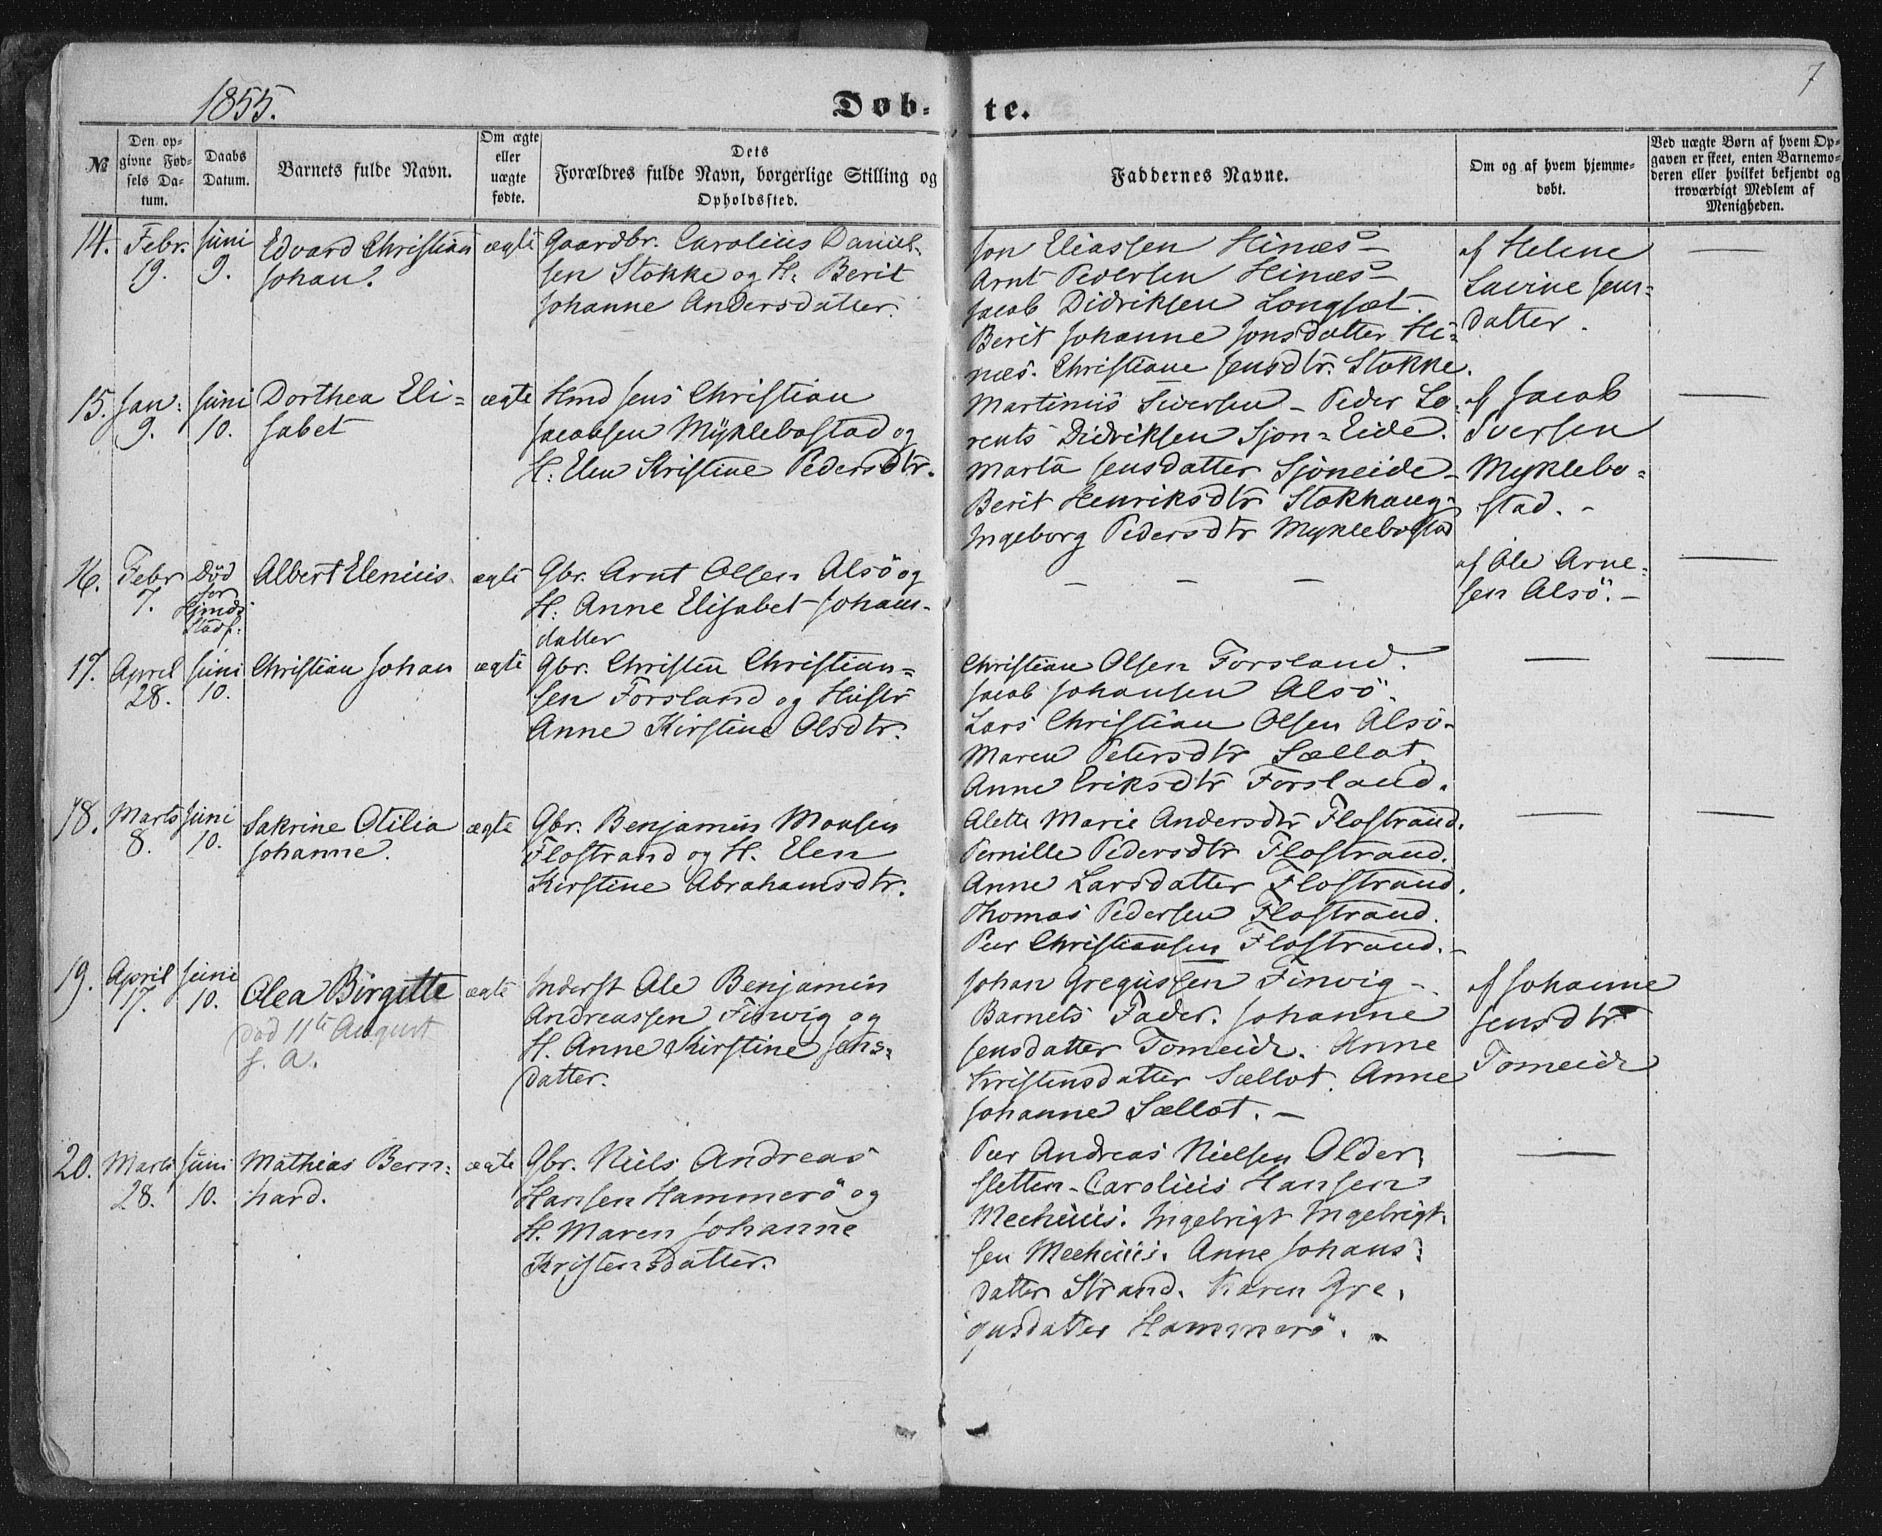 1855.
Døb-
te.
7
№
Den op-
givne Fød-
sels Da-
tum.
Daabs
Datum.
Barnets fulde Navn.
Om ægte
eller
uægte
fødte.
Dets
Forældres fulde Navn, borgerlige Stilling og
Opholdssted.
Faddernes Navne.
Om og af hvem hjemme-
døbt.
Ved uægte Børn af hvem Op-
gaven er skeet, enten Barnemo-
deren eller hvilket bekjendt og
troværdigt Medlem af
Menigheden.
14.
Febr.
19.
Juni
9.
Edvard Christian
Johan.
ægte
Gaardbr. Carolius Daniel-
sen Stokke og H. Berit
Johanne Andersdatter.
Jon Eliassen Hinæs -
Arnt Pedersen Hinæs -
Jacob Didriksen Longset.
Berit Johanne Jonsdatter Hi-
næs. Christiane Jensdtr. Stokke.
af Helene
Lavine Jens-
datter.
15.
Jan:
9.
Juni
10.
Dorthea Eli-
sabet
ægte
Hmd Jens Christian
Jacobsen Myklebostad og
H. Elen Kristine Pedersdtr.
Martinus Siversen - Peder Lo-
rents Didriksen Sjon-Eide.
Marta Jensdatter Sjoneide -
Berit Henriksdtr Stokhaug -
Ingeborg Pedersdtr Myklebostad
af Jacob
Sversen
Myklebo-
stad. -
16.
Febr
7.
Død
før
Hjmdb
Stadf.
Albert Elenius.
ægte
Gbr. Arnt Olsen Alsö og
H. Anne Elisabet Johans-
datter
af Ole Arne-
sen Alsö. -
17.
April
28.
Juni
10.
Christian Johan
ægte
Gbr. Christen Christian-
sen Forsland og Hustr
Anne Kirstine Olsdtr.
Christian Olsen Forsland.
Jacob Johansen Alsö.
Lars Christian Olsen Alsö -
Maren Petersdtr Sællot.
Anne Eriksdtr Forsland.
18.
Marts
8.
Juni
10.
Sakrine Otilia
Johanne.
ægte
Gbr. Benjamin Monsen
Flostrand og H. Elen
Kirstine Abrahamsdtr.
Alette Marie Andersdtr Flostrand.
Pernille Pedersdtr Flostrand.
Anne Larsdatter Flostrand.
Thomas Pedersen Flostrand.
Peer Christiansen Flostrand. -
19.
April
17.
Juni
10.
Olea Birgitte
død 11te August
s. a.
ægte
Inderst Ole Benjamin
Andreassen Finvig og
H. Anne Kirstine Jens-
datter.
Johan Gregussen Finvig -
Barnets Fader. Johanne
Jensdatter Tomeide. Anne
Kristensdatter Sællot. Anne
Johanne Sællot. -
af Johanne
Jensdtr
Tomeide
20.
Marts
28.
Juni
10.
Mathias Bern-
hard.
ægte
Gbr. Niels Andreas
Hansen Hammerö og
H. Maren Johanne
Kristensdatter.
Peer Andreas Nielsen Older-
sletten - Carolius Hansen
Ingebrigt Ingebrigt-
sen Anne Johans-
datter Strand. Karen Gre-
gusdatter Hammerö.